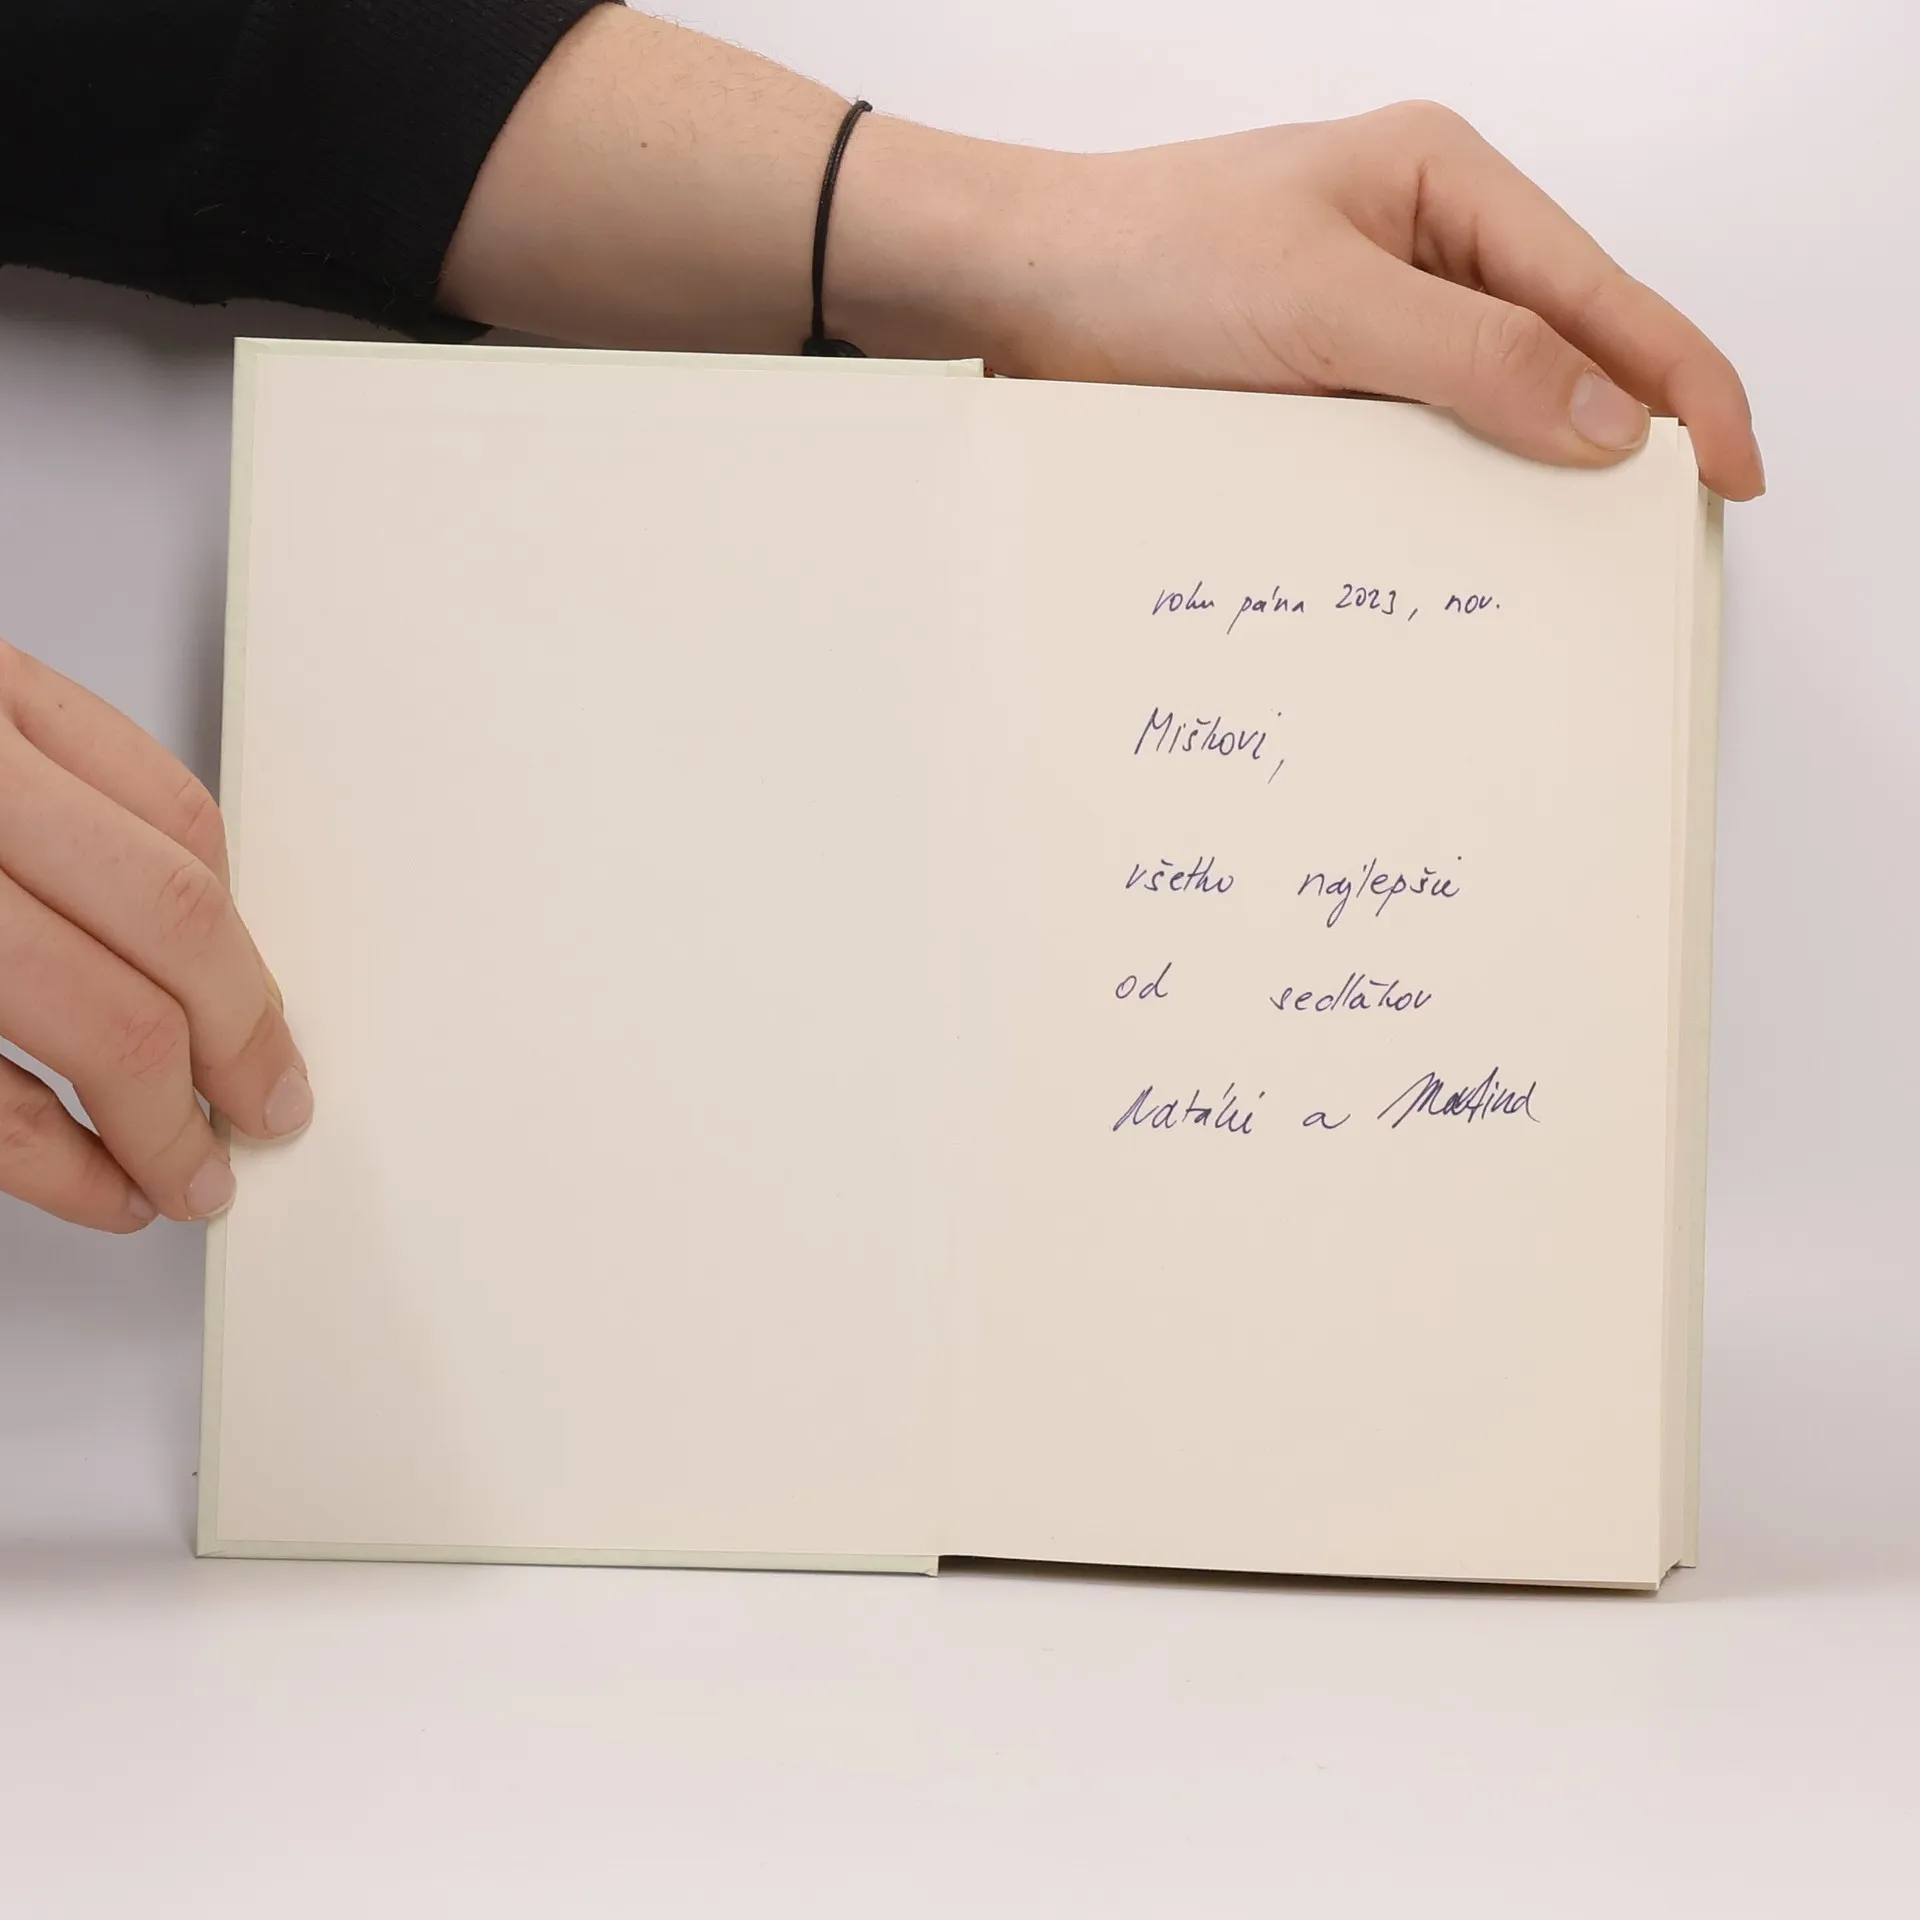 roku pána 2023, nov.
Miškovi,
všetko najlepšie
od sedlákov
a